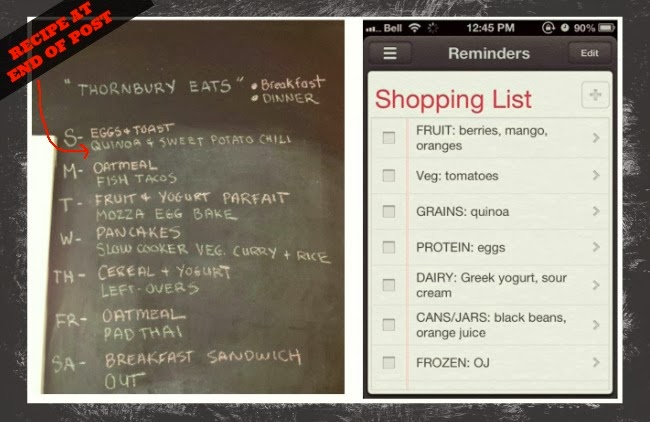 RECIPE AT
END OF POST
"THORNBURY EATS"
• Breakfast
• DINNER
S- EGGS & TOAST
QUINOA & SWEET POTATO CHILI
M- OATMEAL
FISH TACOS
T- FRUIT & YOGURT PARFAIT
MOZZA EGG BAKE
W- PANCAKES
SLOW COOKER VEG. CURRY + RICE
TH- CEREAL & YOGURT
LEFT-OVERS
FR- OATMEAL
PAD THAI
SA- BREAKFAST SANDWICH
OUT
Bell 12:45 PM 90%
Reminders Edit
Shopping List
FRUIT: berries, mango,
oranges
Veg: tomatoes
GRAINS: quinoa
PROTEIN: eggs
DAIRY: Greek yogurt, sour
cream
CANS/JARS: black beans,
orange juice
FROZEN: OJ